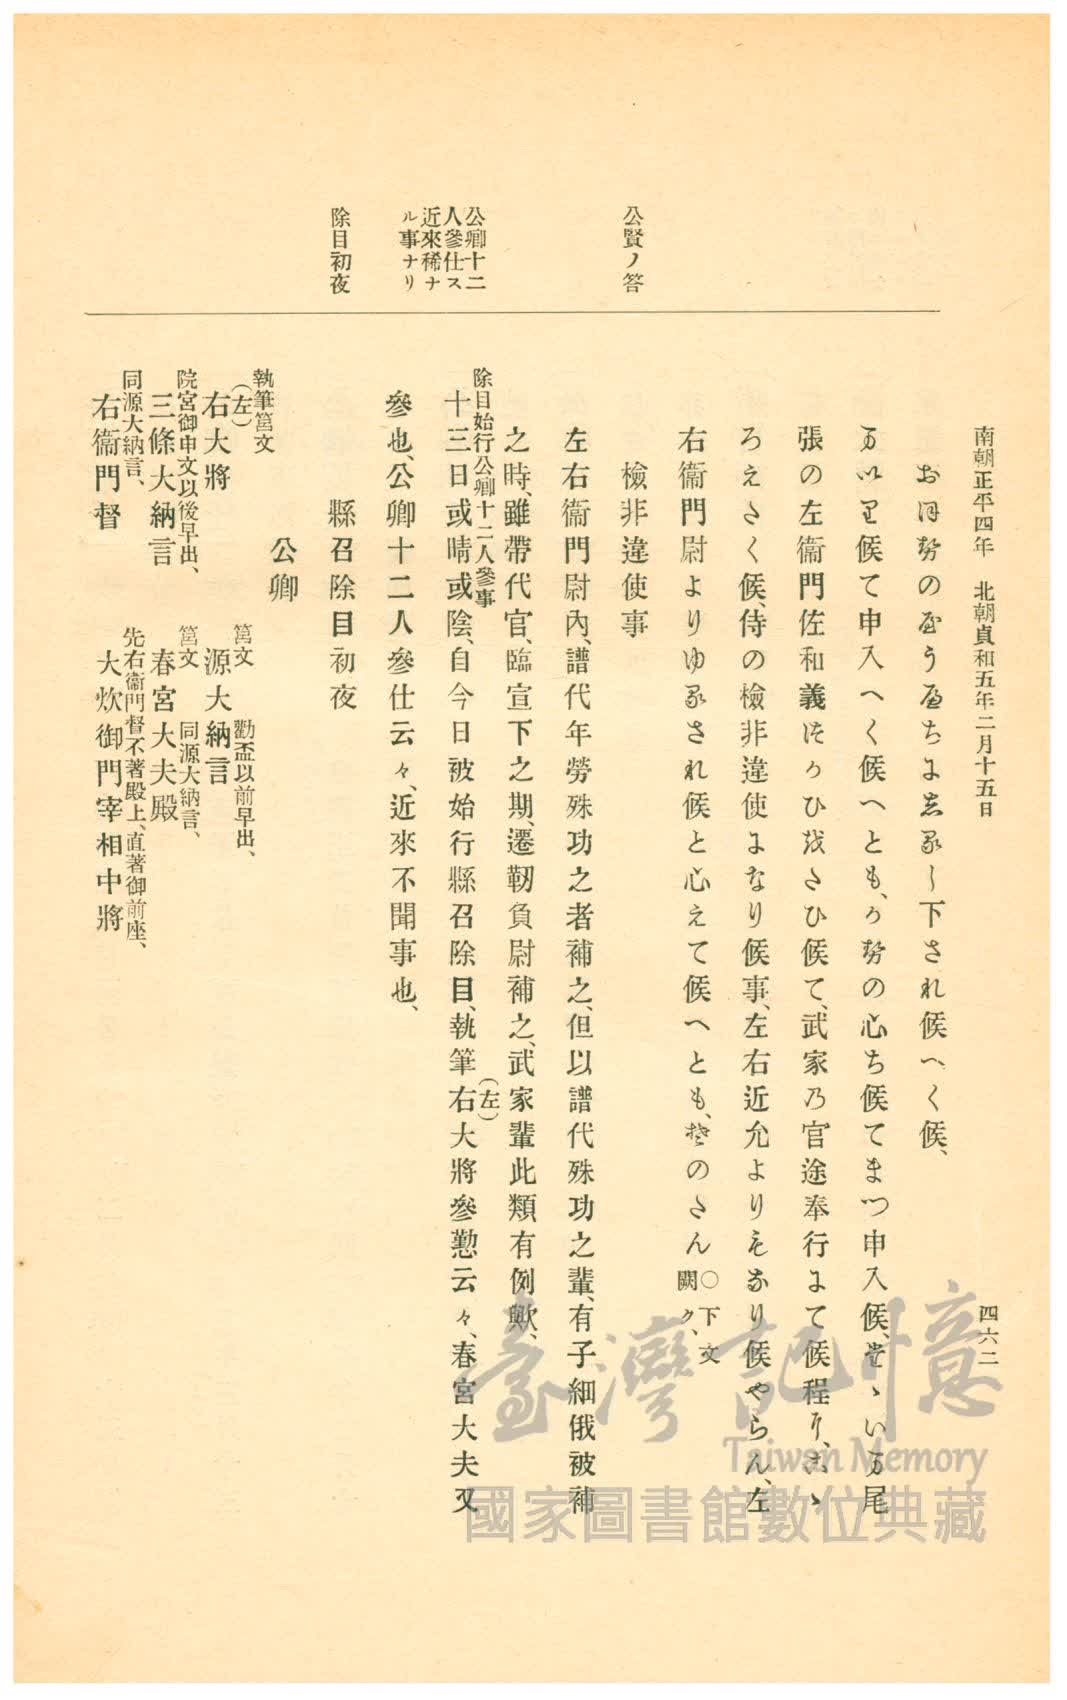 南朝正平四年 北朝貞和五年二月十五日
四六二
公賢ノ答
公卿十二
人參仕ス
近來稀ナ
ル事ナリ
除目初夜
下され候へく候、
候て申入へく候へとも、の心ち候てまつ申入候、尾
張の左衞門佐和義ひさひ候て、武家乃官途奉行にて候程に、
ろえさく候、侍の檢非違使になり候事、左右近允よりもなり候やらん、左
右衞門尉よりゆるされ候と心えて候へとも、のさん〇下文闕ク、
檢非違使事
左右衞門尉內、譜代年勞殊功之者補之、但以譜代殊功之輩、有子細俄被補
之時、雖帶代官、臨宣下之期、遷靱負尉補之、武家輩此類有例歟、
除目始行公卿十二人參事
十三日或晴或陰、自今日被始行縣召除目、執筆右(左)大將參懃云々、春宮大夫又
參也、公卿十二人參仕云々、近來不聞事也、
縣召除目初夜
公卿
執筆筥文
(左)
右大將
筥文 勸盃以前早出、
源大納言
院宮御申文以後早出、
三條大納言
筥文 同源大納言、
春宮大夫殿
同源大納言、
右衞門督
先右衞門督不著殿上、直著御前座、
大炊御門宰相中將
臺灣記憶
Taiwan Memory
國家圖書館數位典藏